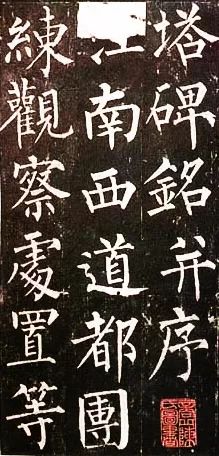 塔碑銘并序
江南西道都團
練觀察處置等